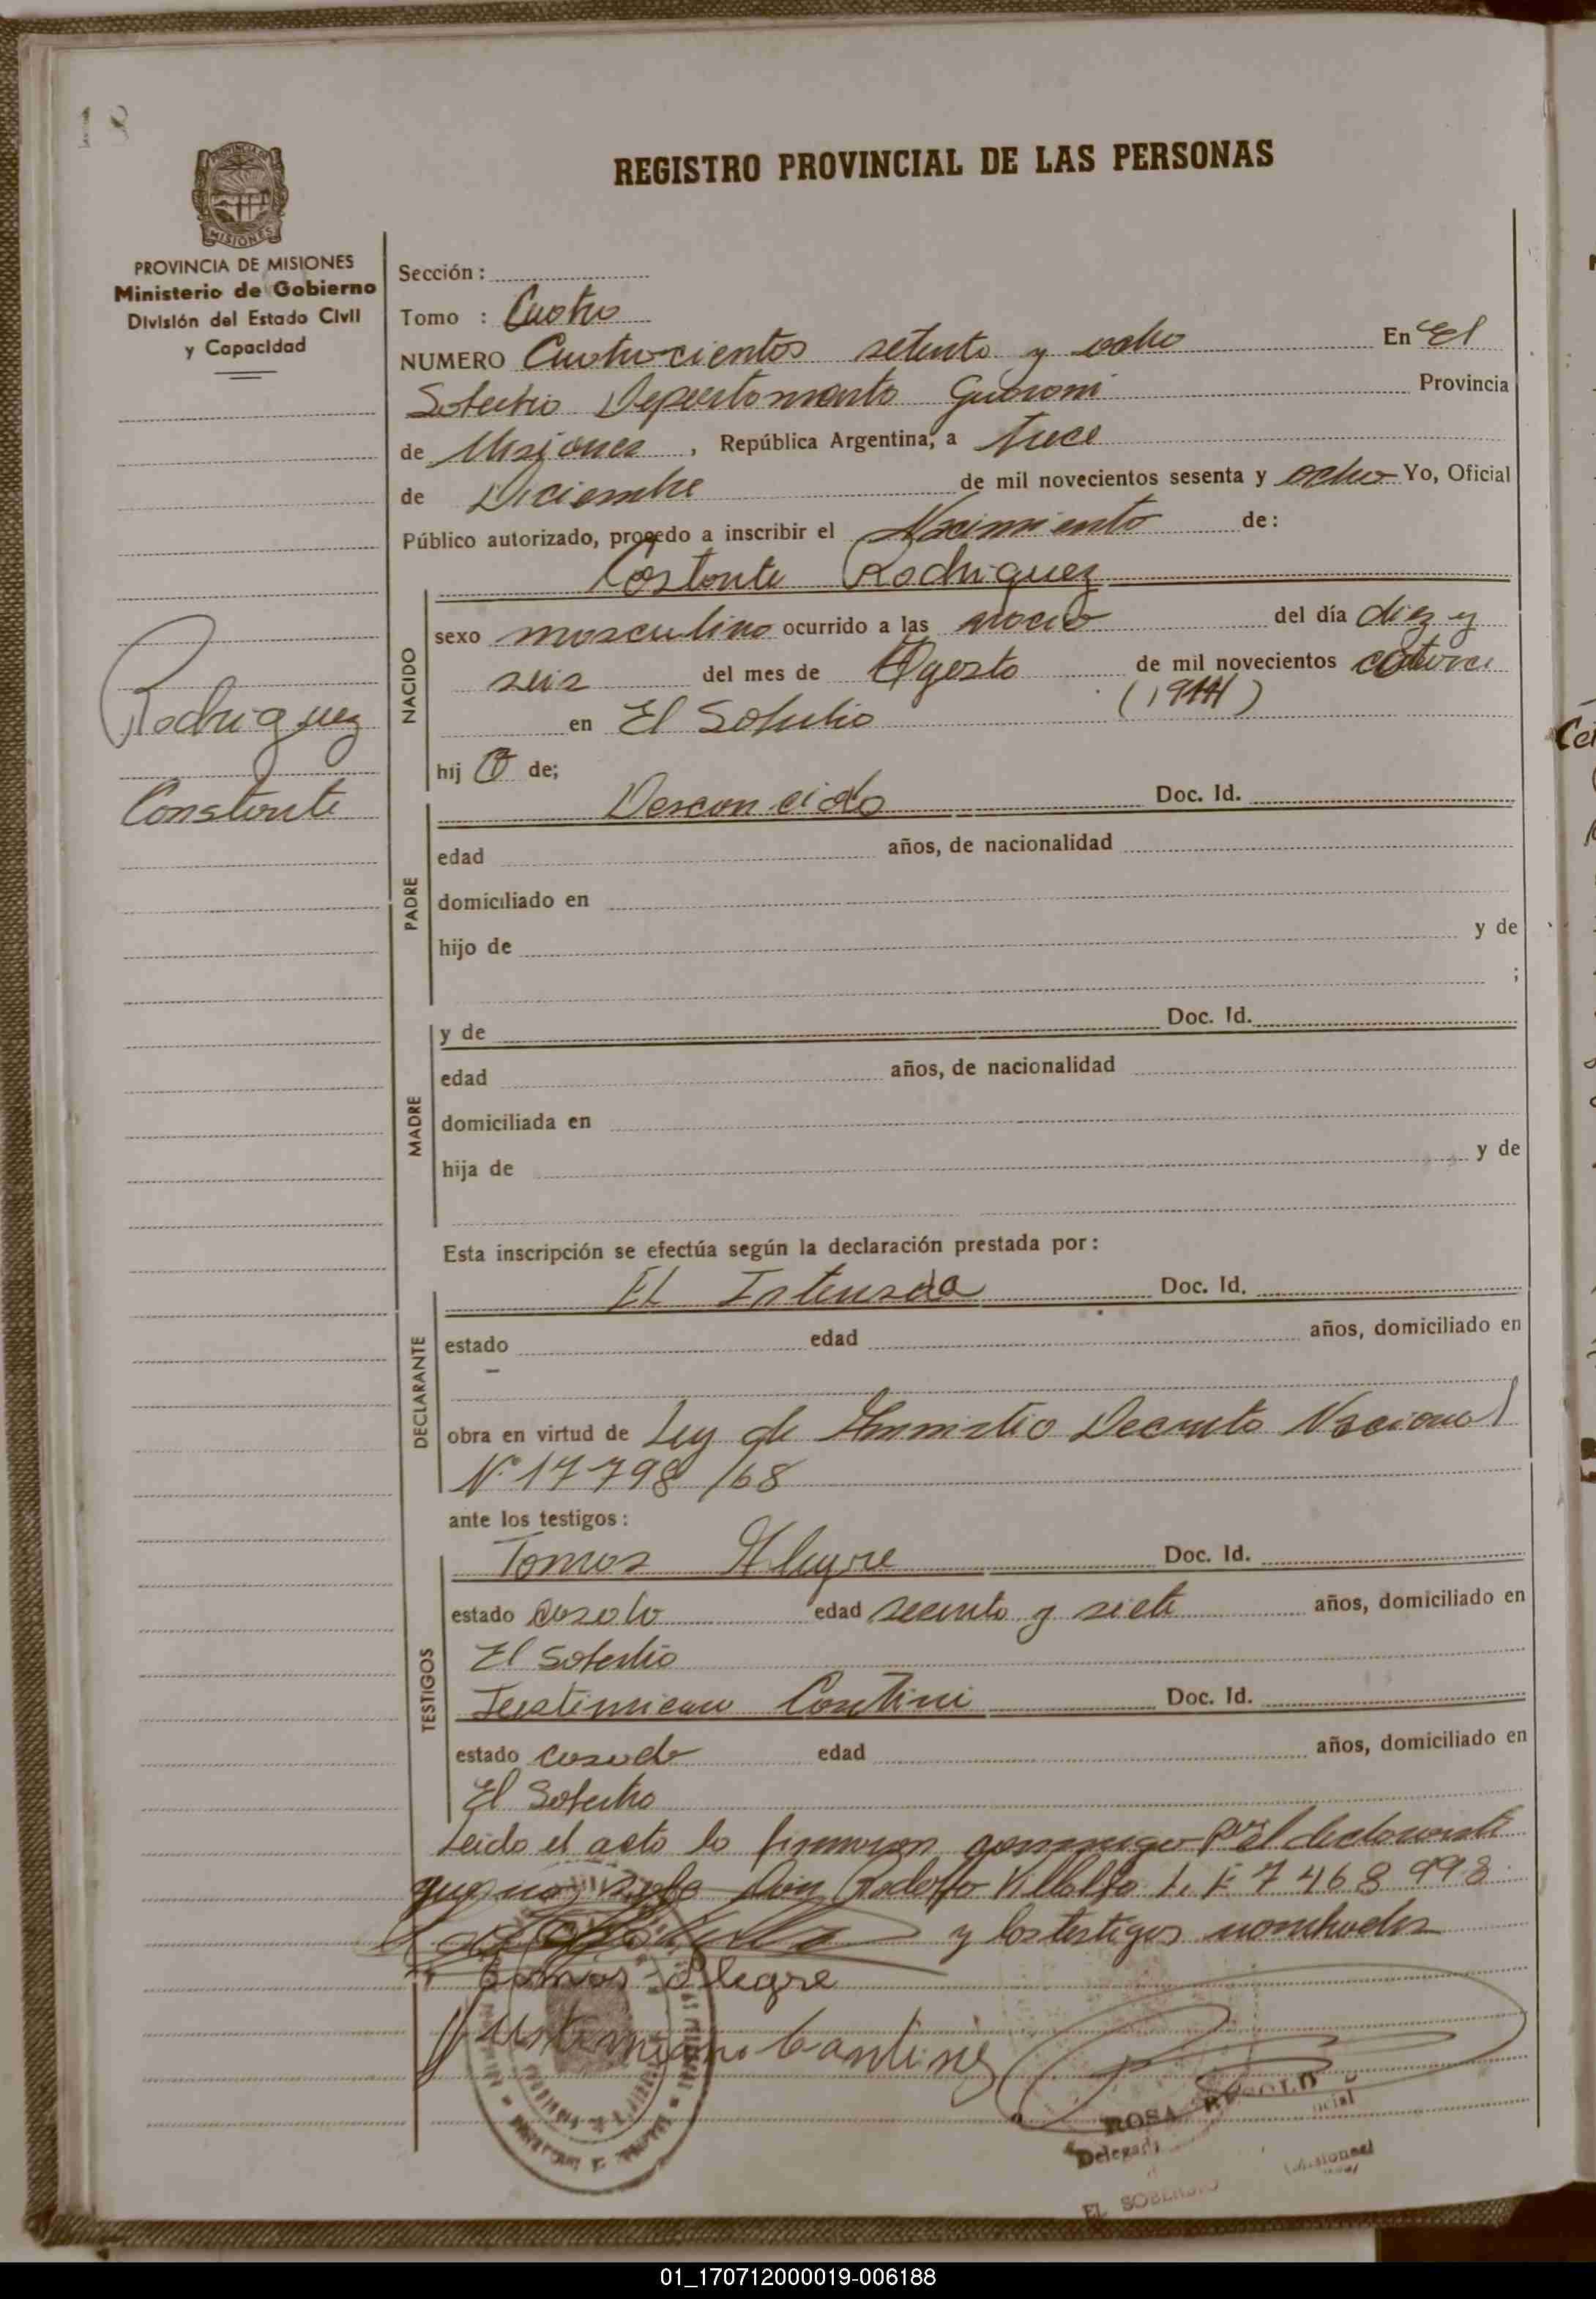 REGISTRO PROVINCIAL DE LAS PERSONAS
PROVINCIA DE MISIONES
MISIONES
PROVINCIA DE MISIONES
Ministerio de Gobierno
División del Estado Civil
y Capacidad
Rodriguez
Constante
Sección:
Tomo : Cuatro
NUMERO Cuatrocientos setenta y ocho En El
Soberbio Departamento Guarani Provincia
de Misiones, República Argentina, a trece
de Diciembre de mil novecientos sesenta y ocho Yo, Oficial
Público autorizado, procedo a inscribir el Nacimiento de:
Costante Rodriguez
NACIDO
sexo masculino ocurrido a las del día diez y
seis del mes de Agosto de mil novecientos catorce
(1914)
en El Soberbio
hij o de;
PADRE
Desconcido Doc. Id.
edad años, de nacionalidad
domiciliado en
hijo de y de
;
MADRE
y de Doc. Id.
edad años, de nacionalidad
domiciliada en
hija de y de
Esta inscripción se efectúa según la declaración prestada por:
DECLARANTE
El Doc. Id.
estado edad años, domiciliado en
obra en virtud de Ley de Amnistio Decreto Nacional
Nº 17798/68
ante los testigos:
TESTIGOS
Tomas Alegre Doc. Id.
estado casado edad y siete años, domiciliado en
El Soberbio
Contini Doc. Id.
estado casado edad años, domiciliado en
El Soberbio
Leido el acto lo firmaron conmigo por el declarante
que no Don Rodolfo Villalba L. E 7468998
y los testigos nombrados
Tomas Alegre
Justimiano
ROSA
Delegad
(Misiones)
EL SOBERBIO
01_170712000019-006188